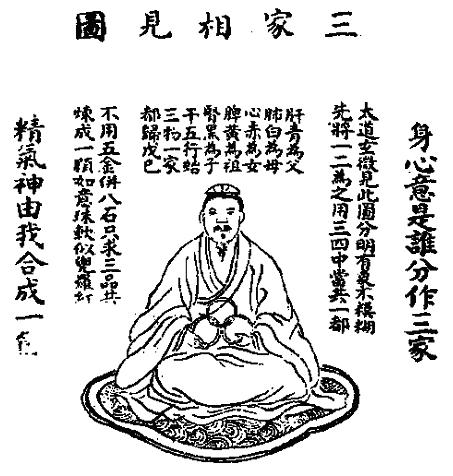 三家相見圖
身心意是誰分作三家
大道玄微見此圖分明有象不模糊
先將一二為之用三四中當共一都
肝青為父
肺白為母
心赤為女
脾黃為祖
腎黑為子
子五行始
三物一家
都歸戊己
不用五金併八石只求三品共
煉成一顆如意珠軟似兜羅紅
精氣神由我合成一